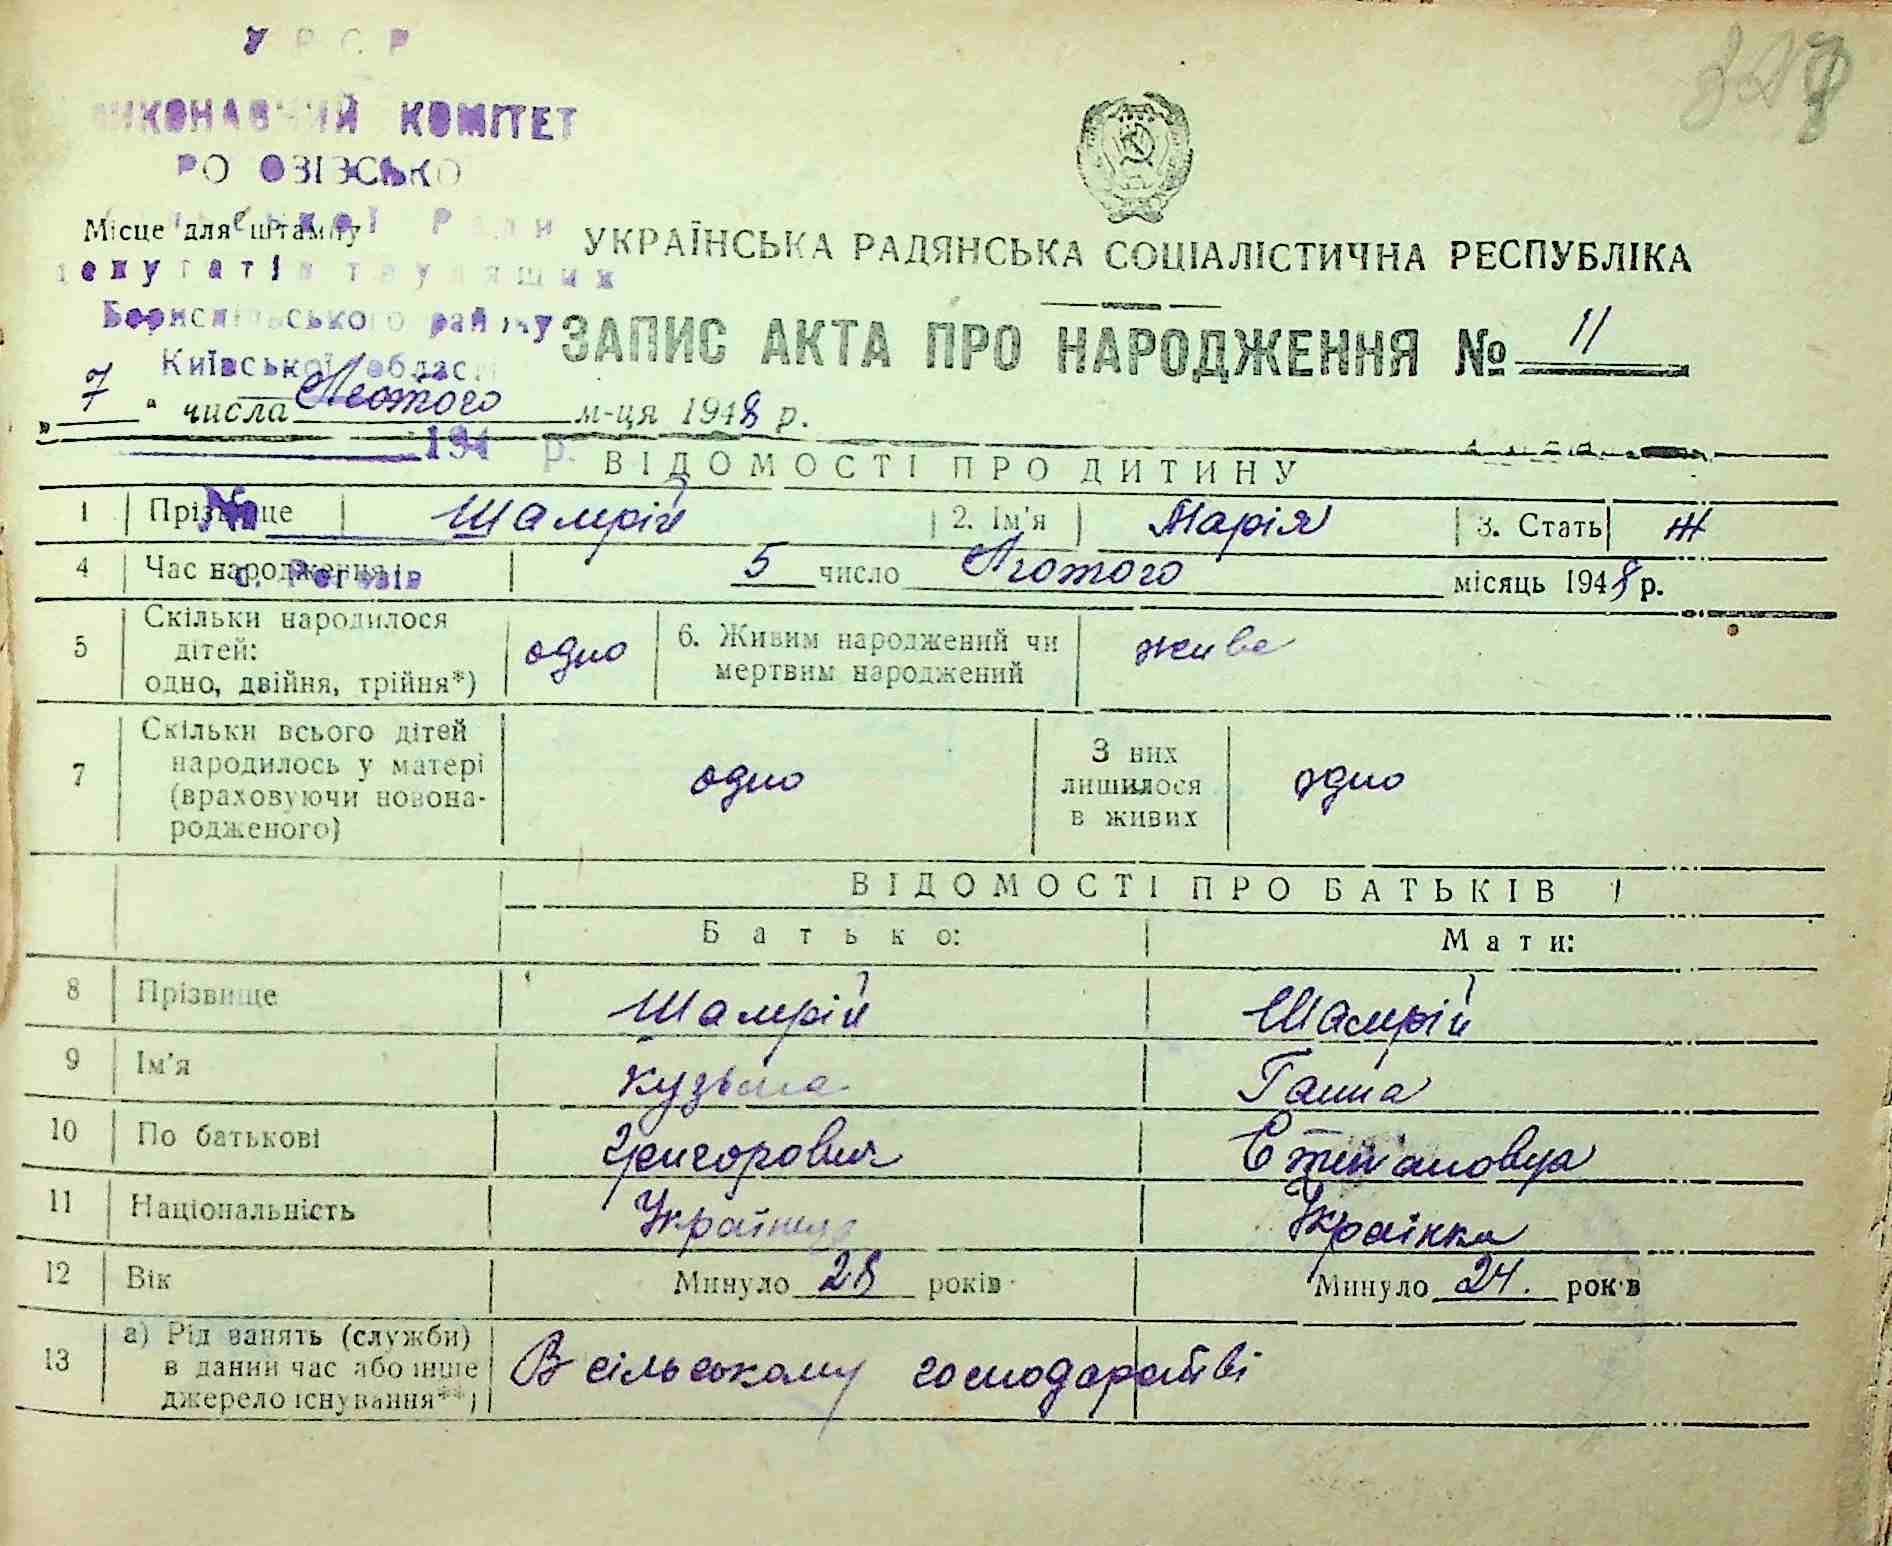 УРСР
ВИКОНАВЧИЙ КОМІТЕТ
РО ОЗІВСЬКО
Місце для штампу
сільської Ради
депутатів трудящих
Бориспільського району
Київської області
УКРАЇНСЬКА РАДЯНСЬКА СОЦІАЛІСТИЧНА РЕСПУБЛІКА
ЗАПИС АКТА ПРО НАРОДЖЕННЯ № 11
„ 7 “ числа Лютого м-ця 1948 р.
194 р.
ВІДОМОСТІ ПРО ДИТИНУ
1 Прізвище Шамрій 2. Ім'я Марія 3. Стать Ж
№
4 Час народження 5 число Лютого місяць 1948 р.
с. Рогозів
5 Скільки народилося дітей: одно, двійня, трійня*) одно 6. Живим народжений чи мертвим народжений живе
7 Скільки всього дітей народилось у матері (враховуючи новонародженого) одно З них лишилося в живих одно
ВІДОМОСТІ ПРО БАТЬКІВ
Батько: Мати:
8 Прізвище Шамрій Шамрій
9 Ім'я Кузьма Ганна
10 По батькові Григорович Степановна
11 Національність Українець Українка
12 Вік Минуло 28 років Минуло 24. років
13 а) Рід занять (служби) в даний час або інше джерело існування**) В сільському господарстві